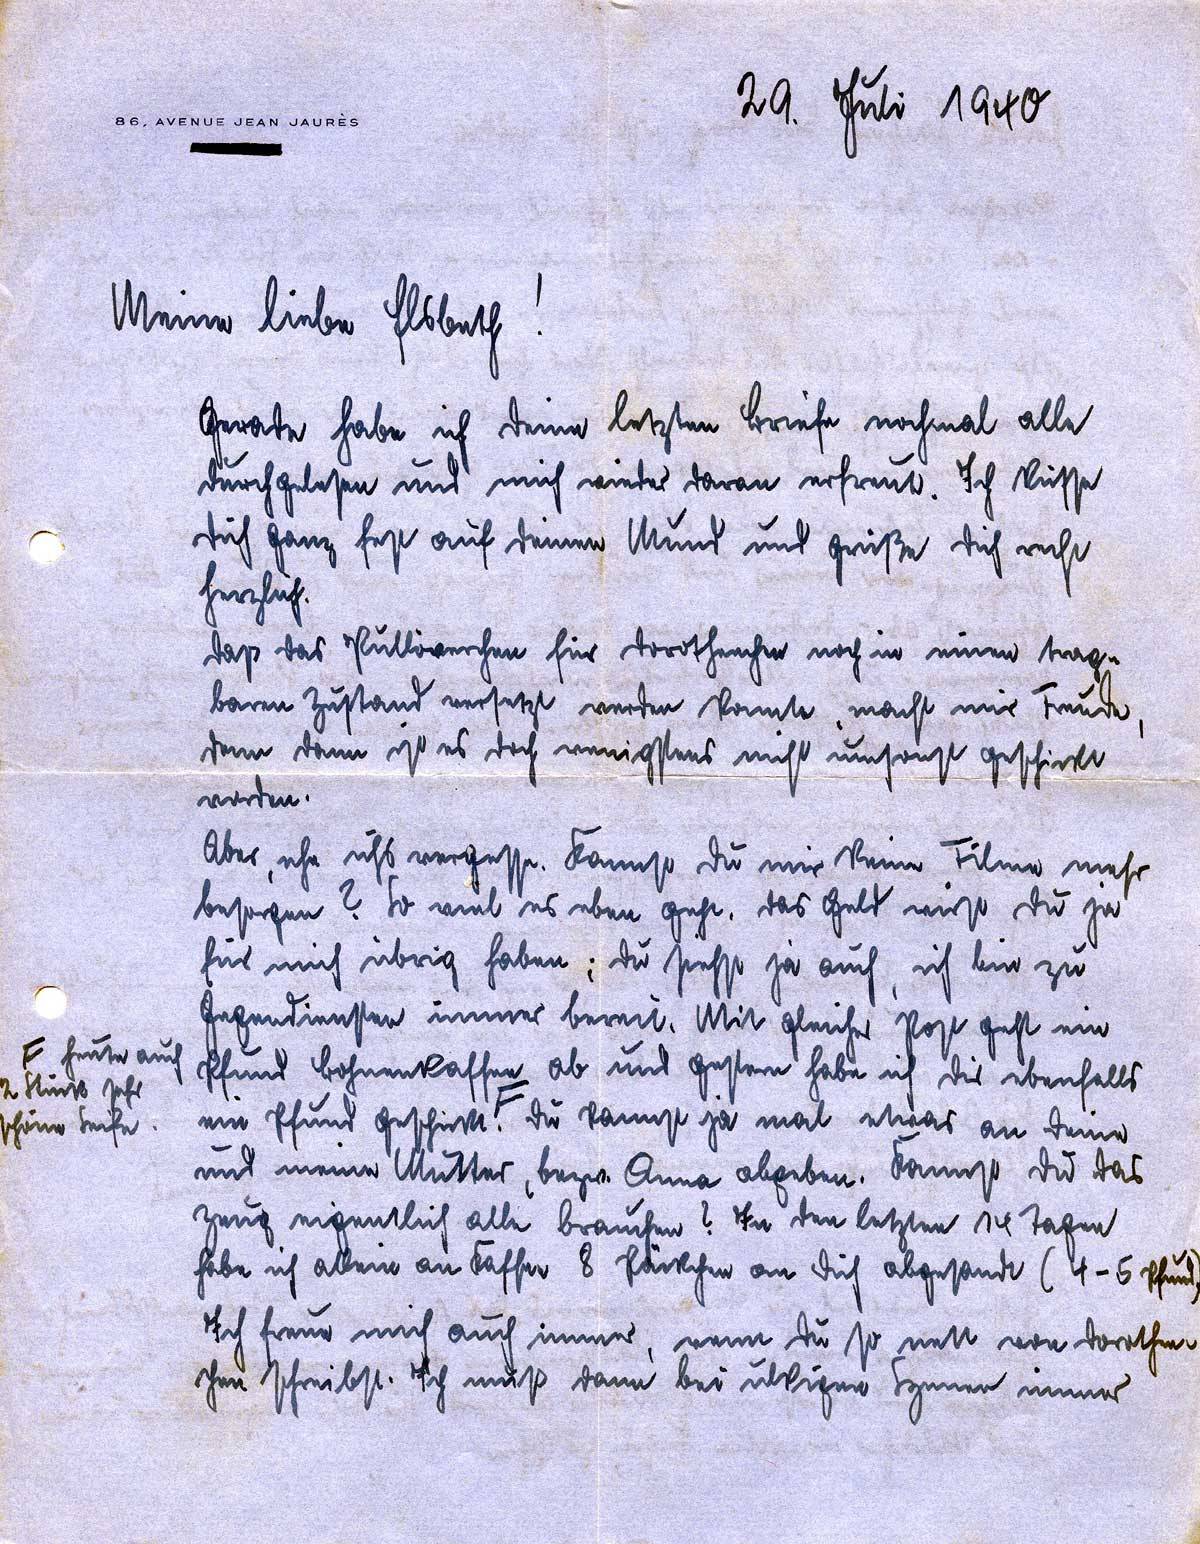 86, AVENUE JEAN JAURÈS
29. Juli 1940
Meine liebe Elsbeth!
Gerade habe ich Deine letzten Briefe nochmal alle
durchgelesen und mich wieder daran erfreut. Ich küsse
Dich ganz fest auf Deinen Mund und grüße Dich recht
herzlich.
Daß das Pulloverchen für Dorotheechen noch in einen trag-
baren Zustand versetzt werden konnte, macht mir Freude,
denn dann ist es doch wenigstens nicht umsonst geschickt
worden.
Aber, ehe ichs vergesse. Kannst Du mir keine Filme mehr
besorgen? So viel es eben geht. Das Geld wirst Du ja
für mich übrig haben; Du siehst ja auch, ich bin zu
Gegendiensten immer bereit. Mit gleicher Post geht ein
Pfund Bohnenkaffee ab und gestern habe ich Dir ebenfalls
ein Pfund geschickt. F Du kannst ja mal etwas an Deine
und meine Mutter, bezw. Anna abgeben. Kannst Du das
Zeug eigentlich alle brauchen? In den letzten 14 Tagen
habe ich allein an Kaffee 8 Päckchen an Dich abgesandt (4-5 Pfund)
Ich freue mich auch immer, wenn Du so nett von Dorothee-
chen schreibst. Ich muß dann bei ulkigen Szenen immer
F heute auch
2 Stück sehr
schöne Seife.